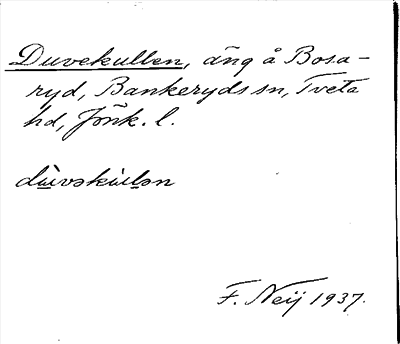 Duvekullen, äng å Bosa-
ryd, Bankeryds sn, Tveta
hd, Jönk. l.
dùvəkùlən
F. Neij 1937.